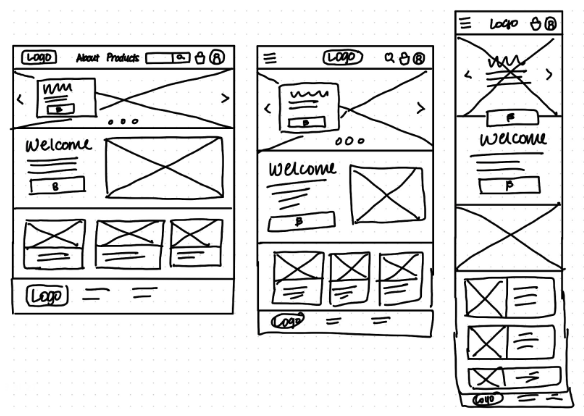 Logo About Products
B
Welcome
B
Logo
Logo
B
Welcome
B
Logo
Logo
B
Welcome
B
Logo